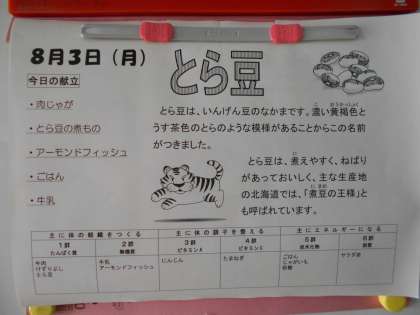 8月3日（月）
とら豆
今日の献立
・肉じゃが
・とら豆の煮もの
・アーモンドフィッシュ
・ごはん
・牛乳
とら豆は、いんげん豆のなかまです。濃い黄褐色と
うす茶色のとらのような模様があることからこの名前
がつきました。
とら豆は、煮えやすく、ねばり
があっておいしく、主な生産地
の北海道では、「煮豆の王様」と
も呼ばれています。
主に体の組織をつくる 主に体の調子を整える 主にエネルギーになる
1群 2群 3群 4群 5群 6群
たんぱく質 無機質 ビタミンA ビタミンC 炭水化物 脂質
牛肉 牛乳 にんじん たまねぎ ごはん サラダ油
けずりぶし アーモンドフィッシュ じゃがいも
とら豆 砂糖